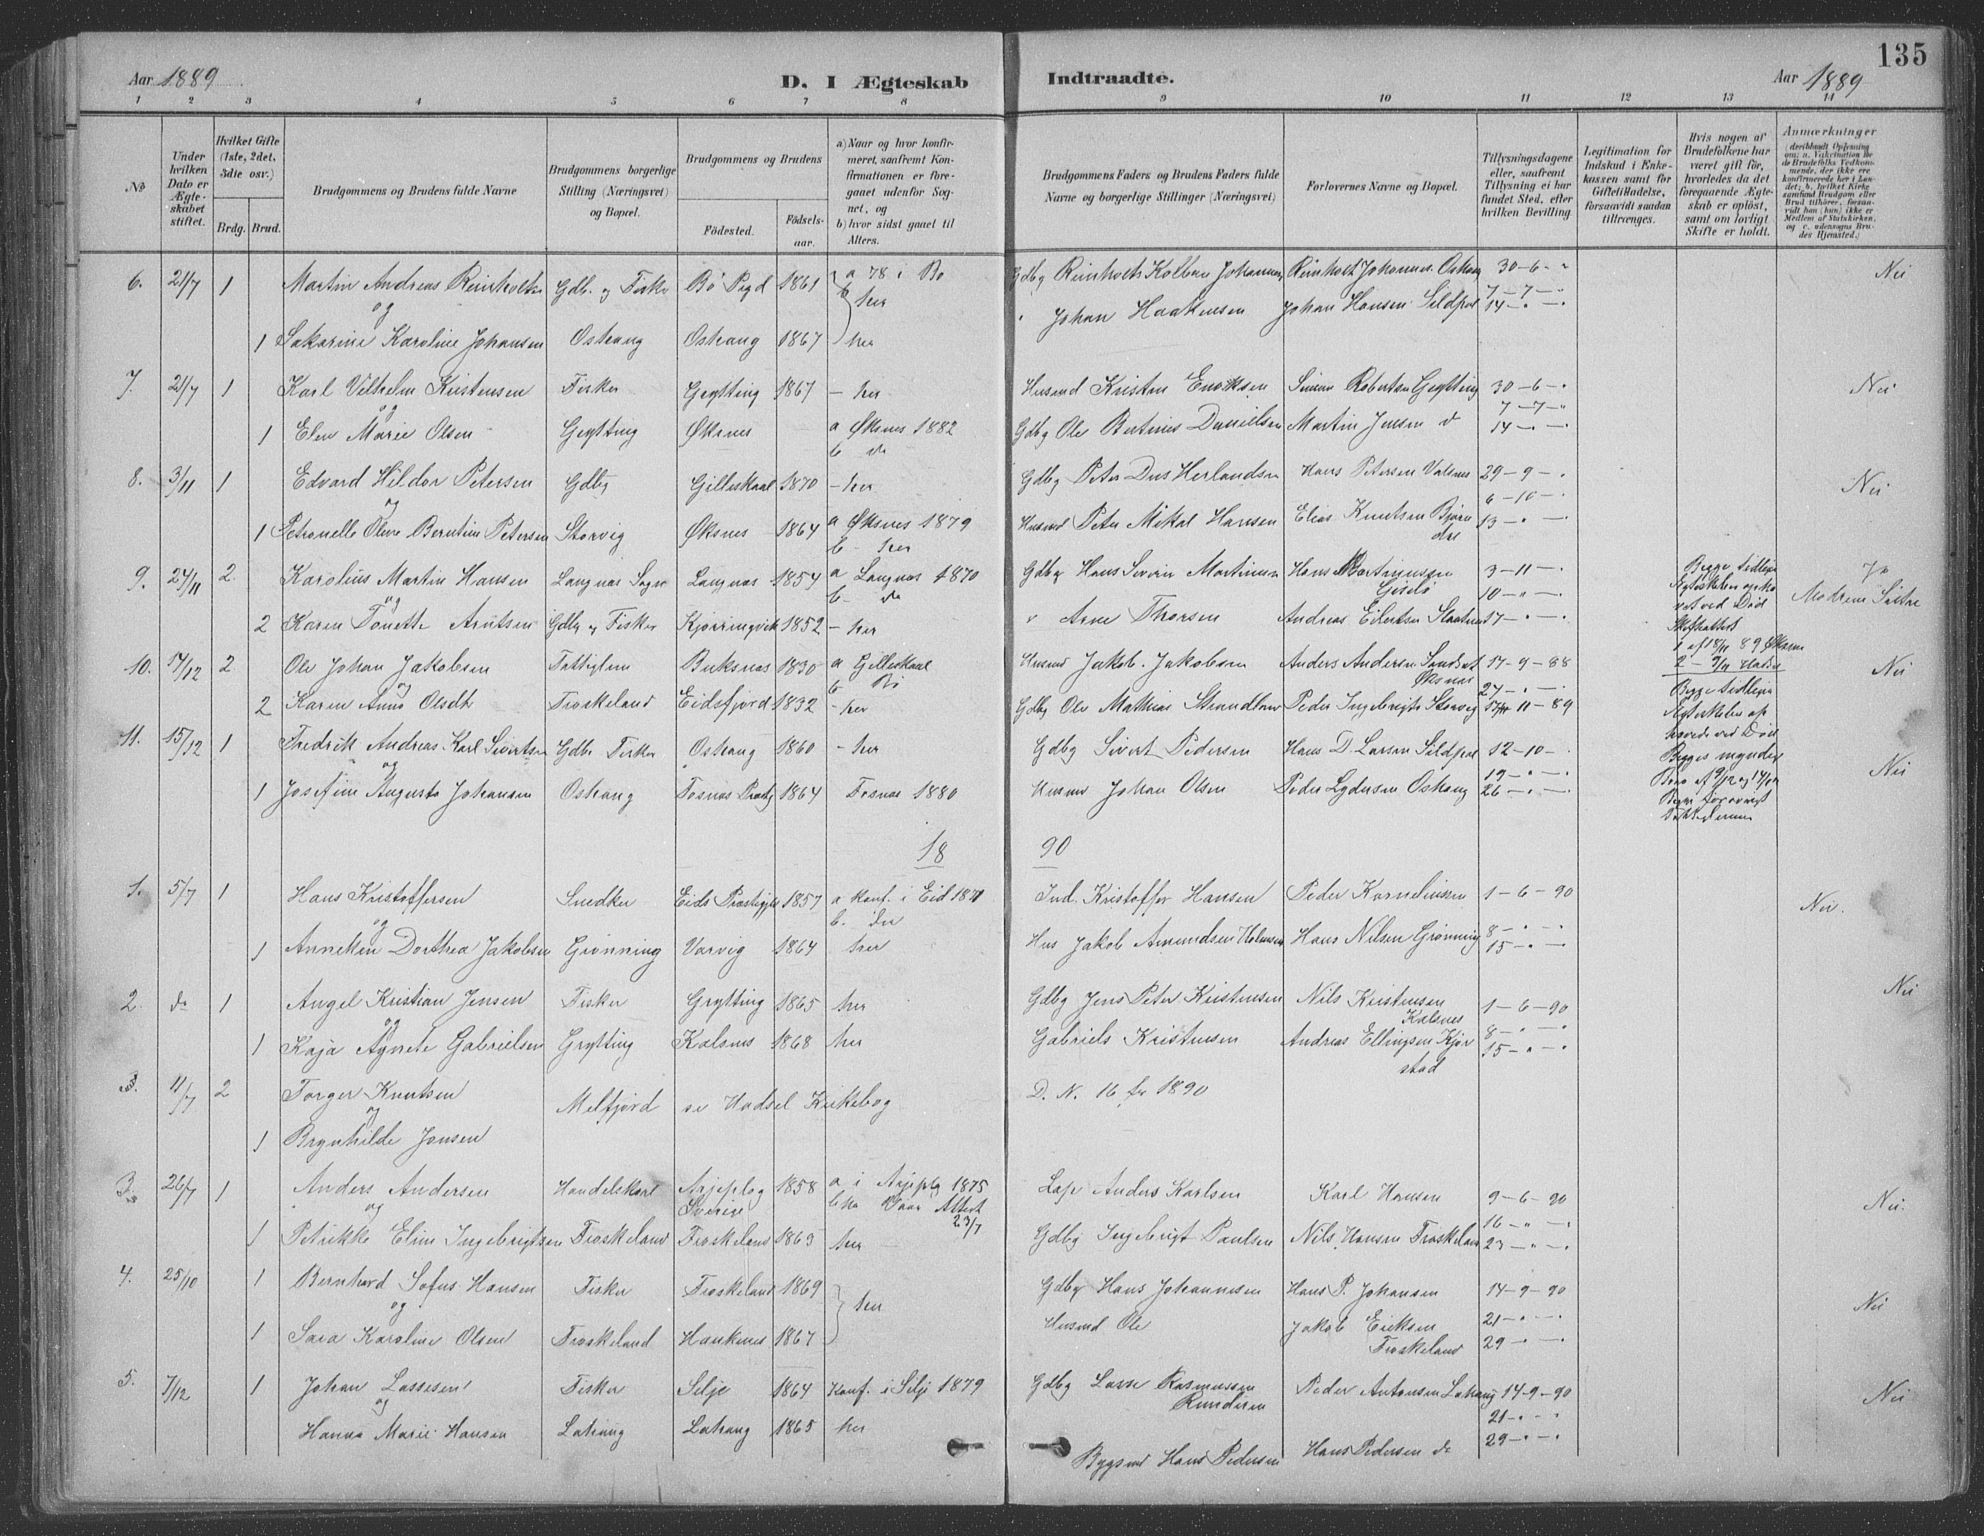 135
Aar 1889
D. I Ægteskab
Indtraadte.
Aar 1889
1 2 3 4 5 6 7 8 9 10 11 12 13 14
No
Under hvilken Dato er Ægteskabet stiftet.
Hvilket Gifte (1ste, 2det, 3die osv.)
Brdg. Brud.
Brudgommens og Brudens fulde Navne
Brudgommens borgerlige Stilling (Næringsvei) og Bopæl.
Brudgommens og Brudens
Fødested.
Fødselsaar.
a) Naar og hvor konfirmeret, saafremt Konfirmationen er foregaaet udenfor Sognet, og
b) hvor sidst gaaet til Alters.
Brudgommens Faders og Brudens Faders fulde Navne og borgerlige Stillinger (Næringsvei)
Forlovernes Navne og Bopæl.
Tillysningsdagene eller, saafremt Tillysning ei har fundet Sted, efter hvilken Bevilling
Legitimation for Indskud i Enkekassen samt for Giftetilladelse, forsaavidt saadan tiltrænges.
Hvis nogen af Brudefolkene har været gift før, hvorledes da det foregaaende Ægteskab er opløst, samt om lovligt Skifte er holdt.
Anmærkninger (deriblandt Oplysning om: a. Vakcination for de Brudefolks Vedkommende, der ikke ere konfirmerede her i Landet; b. hvilket Kirkesamfund Brudgom eller Brud tilhører, forsaavidt han (hun) ikke er Medlem af Statskirken, og c. udensogns Brudes Hjemsted.)
6. 21/7 1 Martin Andreas Reinholtsen Gdb. og Fisker Bø Pgd 1861 a 78 i Bø Gdbg Reinholt Kolban Johannesen Reinholt Johannes. Oshaug 30-6-" Nei
og b her 7-7-"
1 Sakarine Karoline Johansen Oshaug Oshaug 1867 her " Johan Haakensen Johan Hansen Sildpol 14-"-"
7. 21/7 1 Karl Vilhelm Kristensen Fisker Grytting 1867 - her Husmd Kristen Enoksen Simon Robertsen Grytting 30-6-" Nei
og 7-7-"
1 Elen Marie Olsen Grytting Øksnes a Øksnes 1882 Gdbg Ole Bertinus Danielsen Martin Jensen d 14-"-"
b do
8. 3/11 1 Edvard Hildor Petersen Gdbg Gilleskaal 1870 - her Gdbg Peter Dus Herlandsen Hans Petersen Valsnes 29-9-" Nei
og 6-10-"
1 Petronelle Oline Berntine Petersen Storvig Øksnes 1864 a Øksnes 1879 Husmd Peter Mikal Hansen Elias Knutsen Bjørn 13-"-"
b- her
9. 24/11 2. Karolius Martin Hansen Langnæs Sogn Langnæs 1854 a Langnæs 1870 Gdbg Hans Sivern Martinsen Hans Martinussen 3-11-" Begge tidligere
og b- do 10-"-"
2 Karen Tonette Arntsen Gdbg og Fisker Kjørringvik 1852 - her " Arne Thorsen Andreas Eilertsen 17-"-"
10. 17/12 2 Ole Johan Jakobsen Buksnæs 1830 a Gilleskaal Husmd Jakob Jakobsen Anders Andersen Sandset 17-9-88 Nei
og b Bø Øksnæs 24-"-"
2 Karen Anna Olsdt Froskeland Eidsfjord 1832 - her Gdbg Ole Mathias Strandbue Peder Ingebrigts Storvig 11-89
Begge tidligere
Ægteskaber op
hævede ved Død
11. 15/12 1 Fredrik Andreas Karl Sivertsen Gdbr Fisker Oshaug 1860 - her Gdbg Sivert Pedersen Hans D. Larsen Sildpol 12-10-" Nei
og 19-"-"
1 Josefine Augusta Johansen Oshaug Fosnæs 1864 Fosnæs 1880 Husmd Johan Olsen Peder Lydersen Oshaug 26-"-"
18 90
1. 5/7 1 Hans Kristoffersen Snedker Eids Præstegjd 1857 a konf. i Eid 1871 Ind. Kristoffer Hansen Peder Korneliussen 1-6-90 Nei.
og b. do 8-"-"
1 Anneken Dorthea Jakobsen Grønning Vorvig 1864 her Hus Jakob Amundsen Holmsen Hans Nilsen Grønning 15-"-"
2. do 1 Angel Kristian Jensen Fisker Grytting 1865 her Gdbg Jens Peter Kristensen Nils Kristensen 1-6-90 Nei
og Kalsnes 8-"-"
1 Kaja Agnete Gabrielsen Grytting Kalsnes 1868 her Gabriels Kristensen Andreas Ellingsen Kjør 15-"-"
stad
3. 11/7 2 Torger Knutsen Melfjord se Hadsel Kirkebog D. N. 16 for 1890
og
1 Brynhilde Jonsen
3. 26/7 1 Anders Andersen Handelskarl Arjeplog 1858 a i Arjeplg 1875 Lap Anders Karlsen Karl Hansen 9-6-90 Nei.
og Sverige 23/7 16-"-"
1 Petrikke Eline Ingebrigtsen Froskeland Froskeland 1863 her Gdbg Ingebrigt Paulsen Nils Hansen Froskeland 23-"-"
4. 25/10 1 Bernhard Sofus Hansen Fisker Froskeland 1869 her Gdbg Hans Johannesen Hans P. Johansen 14-9-90 Nei
og 21-"-"
1 Sara Karoline Olsen Froskeland Haukenes 1867 Husmd Ole Jakob Eriksen 29-"-"
Froskeland
5. 7/12 1 Johan Lassesen Fisker Selje 1864 Konf. i Selje 1879 Gdbg Lasse Rasmussen Peder Antonsen Lahaug 14-9-90 Nei
og 21-"-"
Hanna Marie Hansen Lahaug Lahaug 1865 her 29-"-"
Bygsmd Hans Pedersen Hans Pedersen do